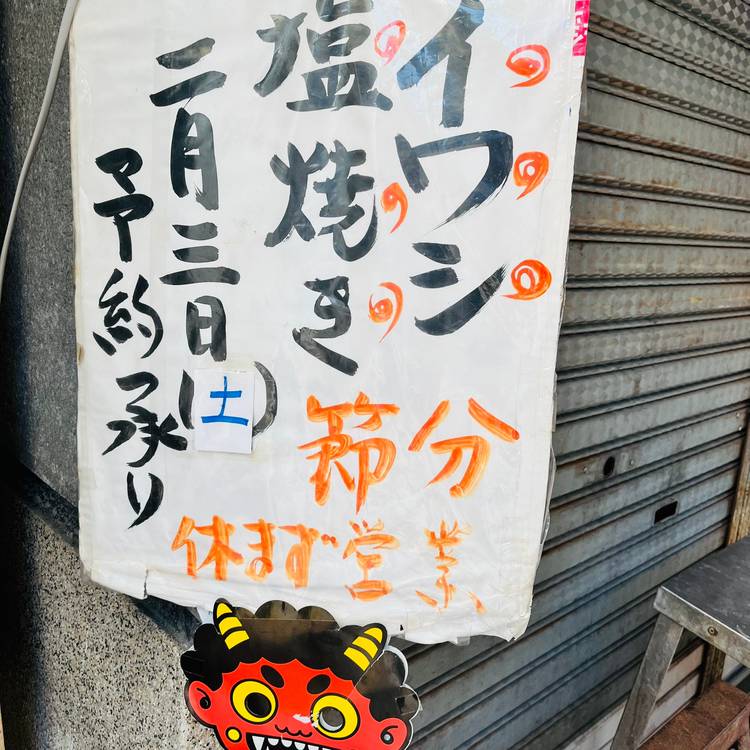 イワシ
塩焼き
二月三日(土)
予約承り
節分
休まず営業